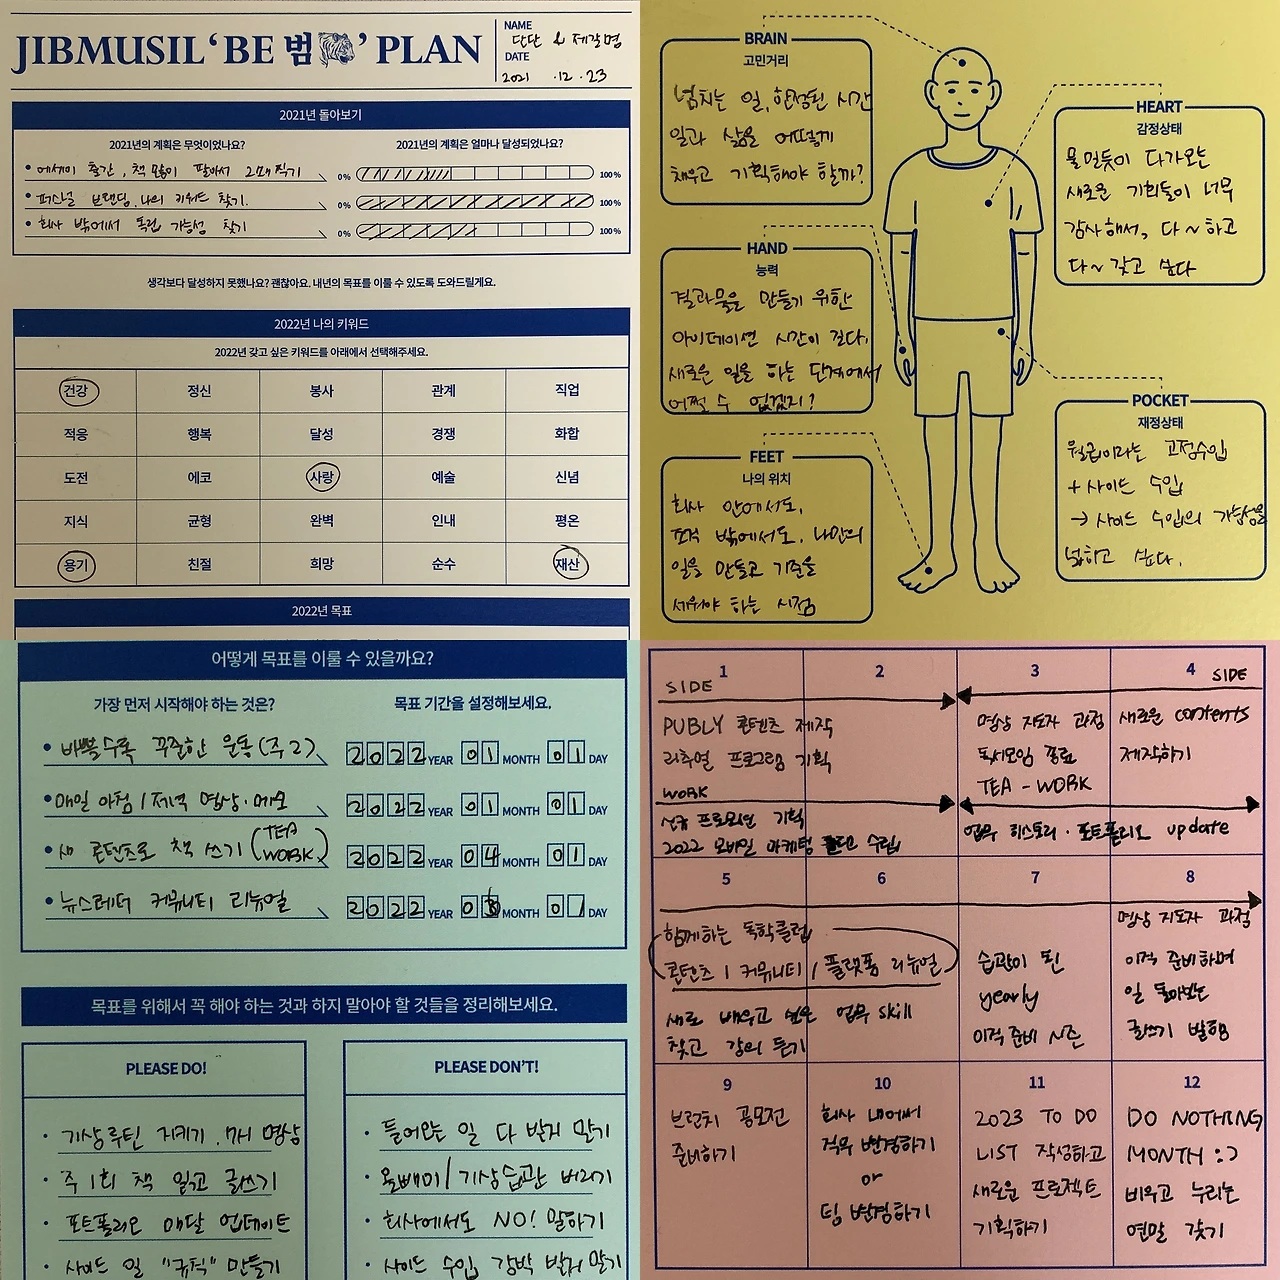 JIBMUSIL ‘BE 범 ’ PLAN
NAME
단단 & 제갈명
DATE
2021 .12.23
2021년 돌아보기
2021년의 계획은 무엇이었나요?
2021년의 계획은 얼마나 달성되었나요?
• 에세이 출간, 책 많이 팔아서 2쇄 찍기
0% 100%
• 퍼스널 브랜딩, 나의 키워드 찾기.
0% 100%
• 회사 밖에서 독립 가능성 찾기
0% 100%
생각보다 달성하지 못했나요? 괜찮아요. 내년의 목표를 이룰 수 있도록 도와드릴게요.
2022년 나의 키워드
2022년 갖고 싶은 키워드를 아래에서 선택해주세요.
건강 정신 봉사 관계 직업
적응 행복 달성 경쟁 화합
도전 에코 사랑 예술 신념
지식 균형 완벽 인내 평온
용기 친절 희망 순수 재산
2022년 목표
BRAIN
고민거리
넘치는 일, 한정된 시간
일과 삶을 어떻게
채우고 기획해야 할까?
HEART
감정상태
물밀듯이 다가오는
새로운 기회들이 너무
감사해서, 다~ 하고
다~ 갖고 싶다
HAND
능력
결과물을 만들기 위한
아이데이션 시간이 길다.
새로운 일을 하는 단계에서
어쩔 수 없겠지?
POCKET
재정상태
월급이라는 고정수입
+ 사이드 수입
→ 사이드 수입의 가능성을
넓히고 싶다.
FEET
나의 위치
회사 안에서도,
조직 밖에서도, 나만의
일을 만들고 기준을
세워야 하는 시점
어떻게 목표를 이룰 수 있을까요?
가장 먼저 시작해야 하는 것은?
목표 기간을 설정해보세요.
• 바쁠수록 꾸준한 운동 (주2)
2022 YEAR 01 MONTH 01 DAY
• 매일 아침/저녁 명상·메모
2022 YEAR 01 MONTH 01 DAY
• 새 콘텐츠로 책 쓰기 (TEA WORK)
2022 YEAR 04 MONTH 01 DAY
• 뉴스레터 커뮤니티 리뉴얼
2022 YEAR 03 MONTH 01 DAY
목표를 위해서 꼭 해야 하는 것과 하지 말아야 할 것들을 정리해보세요.
PLEASE DO!
· 기상루틴 지키기, 7시 명상
· 주 1회 책 읽고 글쓰기
· 포트폴리오 매달 업데이트
· 사이드 일 "규칙" 만들기
PLEASE DON'T!
· 들어오는 일 다 받지 말기
· 올빼미/기상습관 버리기
· 회사에서도 NO! 말하기
· 사이드 수입 강박 받지 말기
1 2 3 4
SIDE
PUBLY 콘텐츠 제작
리추얼 프로그램 기획
WORK
신규 프로모션 기획
2022 모바일 마케팅 수립
명상 지도자 과정
독서모임 종료
TEA - WORK
SIDE
새로운 contents
제작하기
업무 히스토리 · 포트폴리오 update
5 6 7 8
함께하는 독학클럽
콘텐츠 / 커뮤니티 / 플랫폼 리뉴얼
새로 배우고 싶은 업무 skill
찾고 강의 듣기
습관이 된
yearly
이직 준비 시즌
명상 지도자 과정
이직 준비하며
일 돌아보는
글쓰기 발행
9 10 11 12
브런치 공모전
준비하기
회사 내에서
직무 변경하기
or
팀 변경하기
2023 TO DO
LIST 작성하고
새로운 프로젝트
기획하기
DO NOTHING
MONTH :)
비우고 누리는
연말 갖기